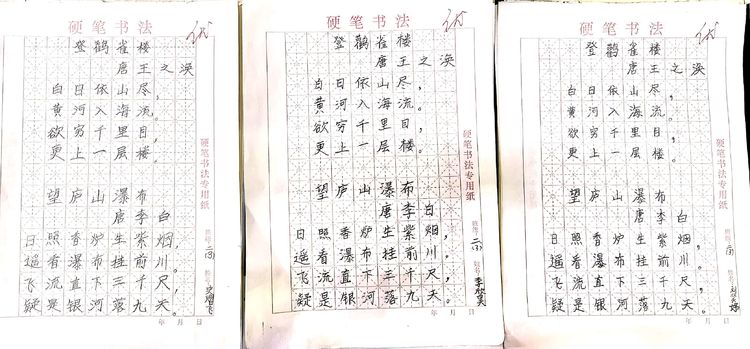 硬笔书法
优
登鹳雀楼
唐王之涣
白日依山尽，
黄河入海流。
欲穷千里目，
更上一层楼。
望庐山瀑布
唐李白
日照香炉生紫烟，
遥看瀑布挂前川。
飞流直下三千尺，
疑是银河落九天。
硬笔书法专用纸
班级：二(3)
年 月 日
硬笔书法
优
登鹳雀楼
唐王之涣
白日依山尽，
黄河入海流。
欲穷千里目，
更上一层楼。
望庐山瀑布
唐李白
日照香炉生紫烟，
遥看瀑布挂前川。
飞流直下三千尺，
疑是银河落九天。
硬笔书法专用纸
班级：二(3)
姓名：李欣昊
年 月 日
硬笔书法
优
登鹳雀楼
唐王之涣
白日依山尽，
黄河入海流。
欲穷千里目，
更上一层楼。
望庐山瀑布
唐李白
日照香炉生紫烟，
遥看瀑布挂前川。
飞流直下三千尺，
疑是银河落九天。
硬笔书法专用纸
班级：二(3)
年 月 日